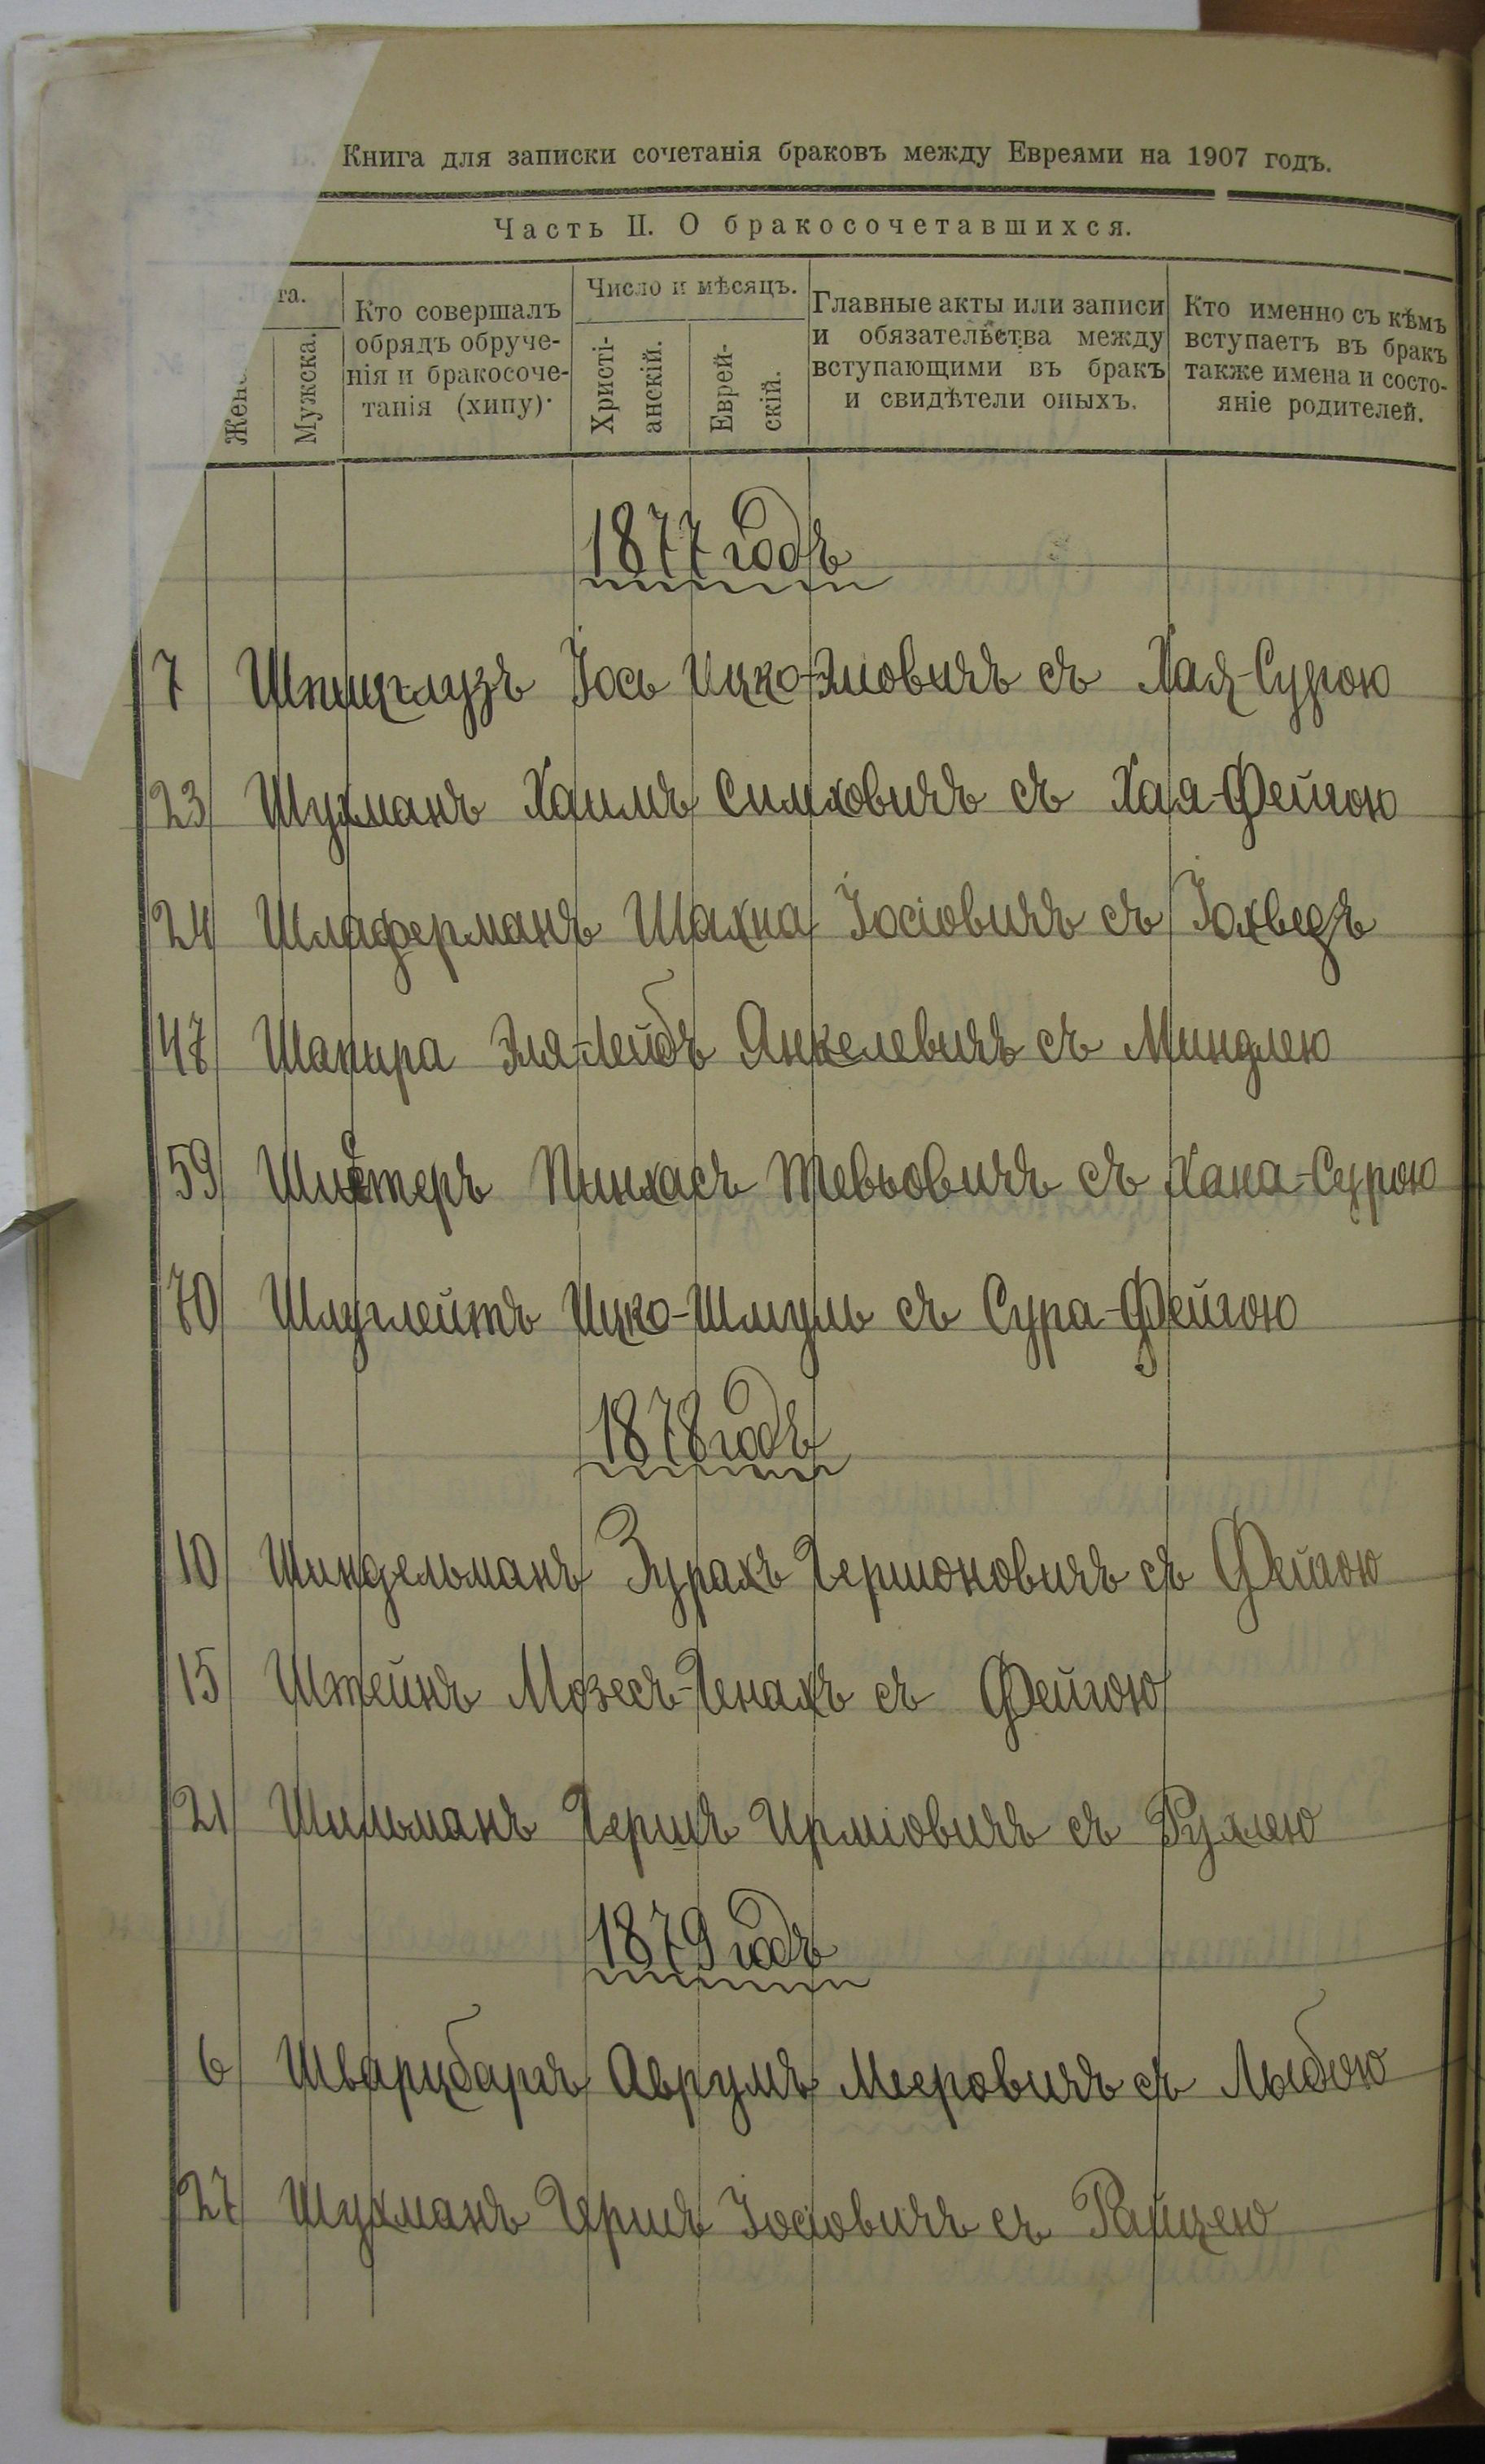 Книга для записки сочетанія браковъ между Евреями на 1907 годъ.
Часть II. О бракосочетавшихся.
та.
Женс
Мужска.
Кто совершалъ
обрядъ обруче-
нія и бракосоче-
танія (хипу).
Число и мѣсяцъ.
Христі-
анскій.
Еврей-
скій.
Главные акты или записи
и обязательства между
вступающими въ бракъ
и свидѣтели оныхъ.
Кто именно съ кѣмъ
вступаетъ въ бракъ
также имена и состо-
яніе родителей.
1877 годъ
7 Шпицглузъ Іось Ицко-Эліовичъ съ Хая-Сурою
23 Шухманъ Хаимъ Симховичъ съ Хая-Фейгою
24 Шлаферманъ Шахна Іосіовичъ съ Іохведъ
47 Шапира Эля-Лейбъ Янкелевичъ съ Миндлею
59 Шистеръ Пинхасъ Тевьовичъ съ Хана-Сурою
70 Шлуглейтъ Ицко-Шмуль съ Сура-Фейгою
1878 годъ
10 Шиндельманъ Зурахъ Гершоновичъ съ Фейгою
15 Штейнъ Мозесъ-Генахъ съ Фейгою
21 Шильманъ Гершъ Ирміовичъ съ Рухлею
1879 годъ
6 Шварцбаргъ Аврумъ Мееровичъ съ Лыбою
27 Шухманъ Гершъ Іосіовичъ съ Райцею